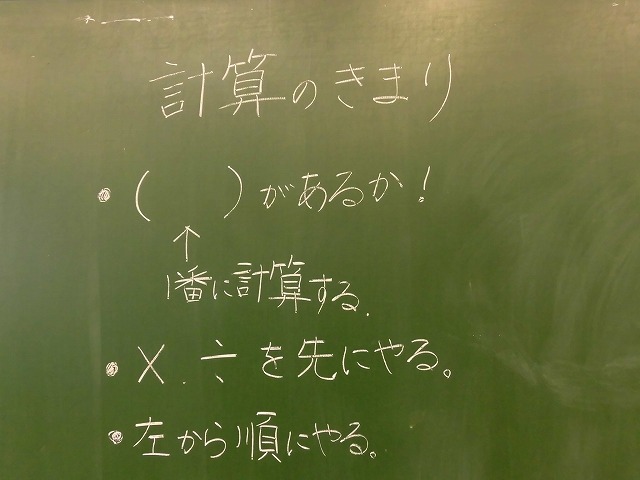 計算のきまり
・(　　)があるか!
↑
1番に計算する.
・×.÷を先にやる。
・左から順にやる。